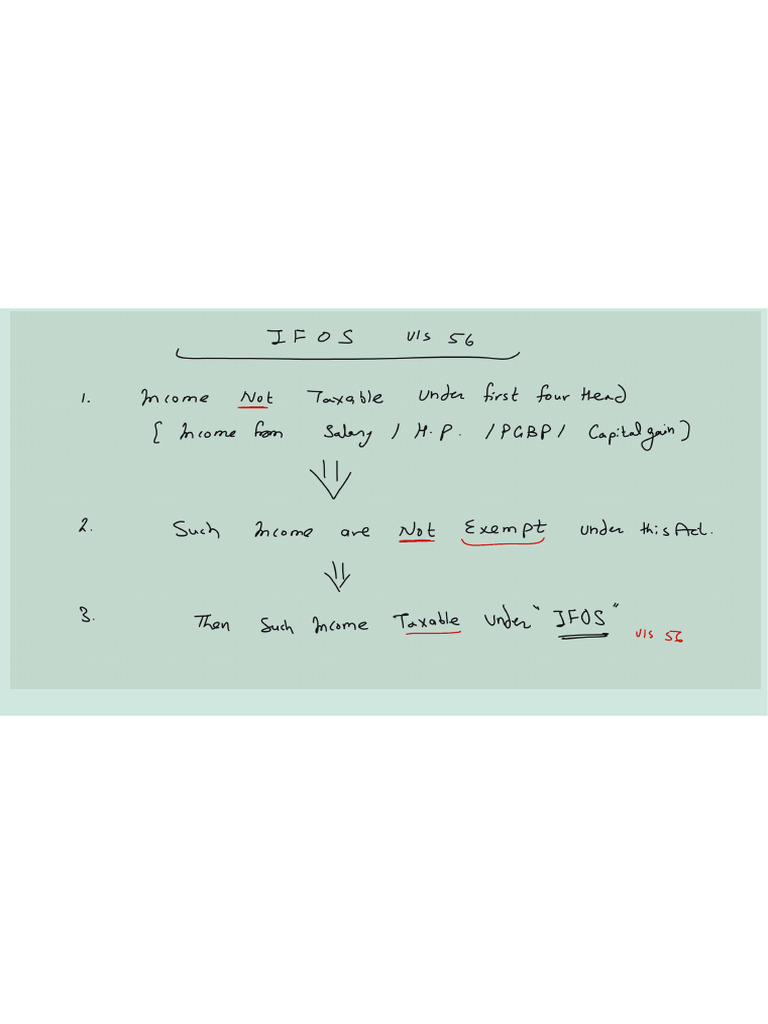 IFOS u/s 56
1. Income Not Taxable under first four Head
[ Income from Salary / H.P. / PGBP / Capital gain ]
2. Such Income are Not Exempt under this Act.
3. Then Such Income Taxable under "IFOS" u/s 56